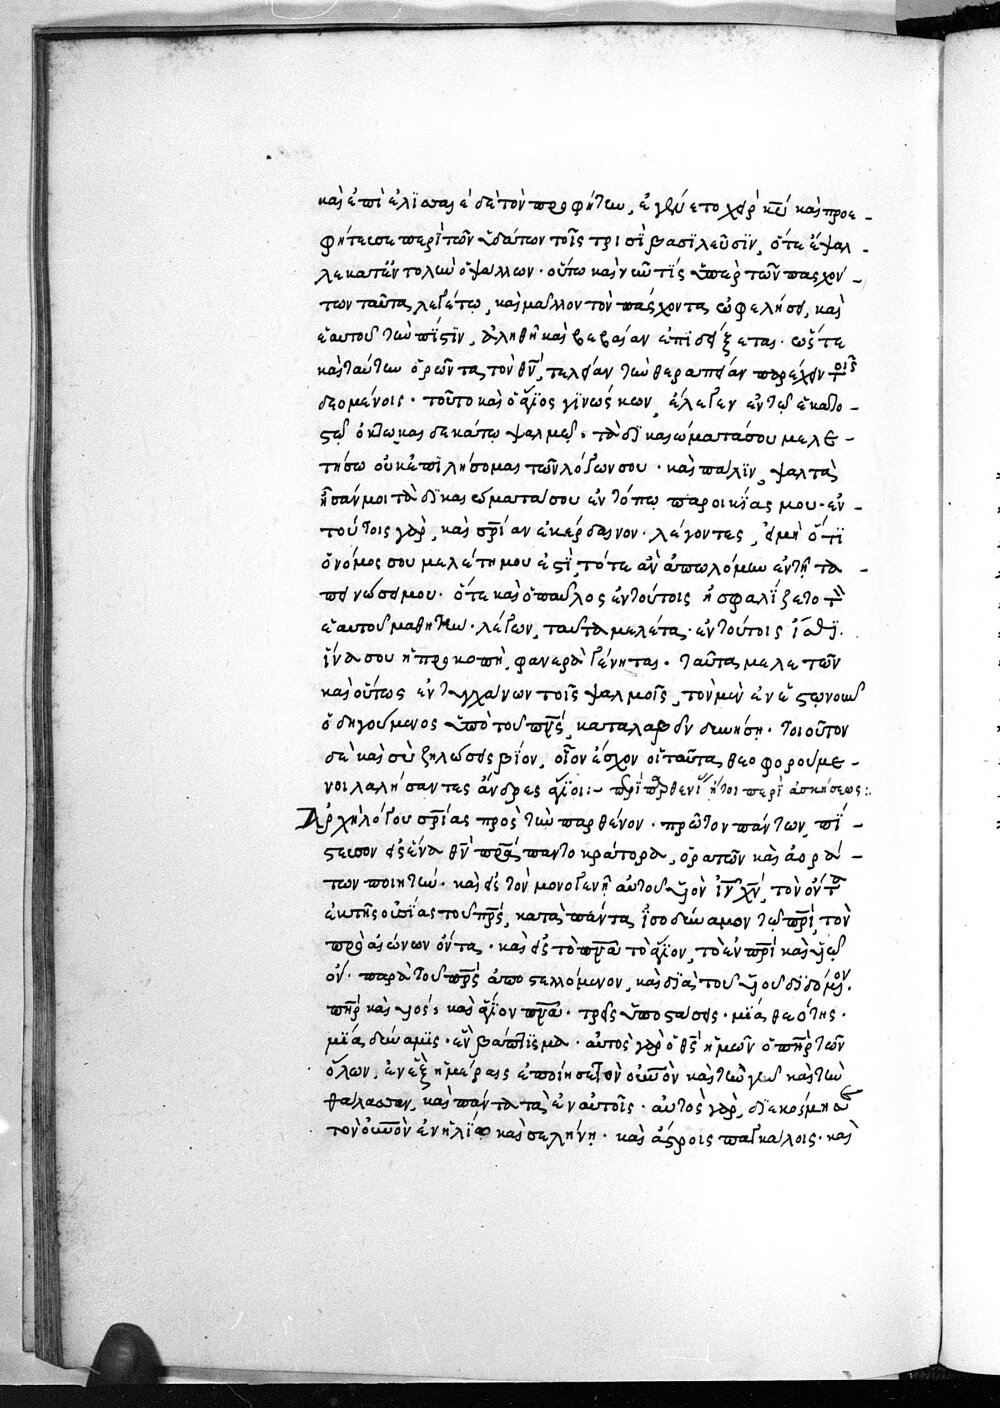 καὶ ἐπὶ ἐλισσαιὲ δὲ τὸν προφήτην, ἐγένετο χεὶρ κυ καὶ προε-
φήτευσε περὶ τῶν ὑδάτων τοῖς τρισὶ βασιλεῦσιν, ὅτε ἔψαλ-
λε κατ' ἐντολὴν ὁ ψάλλων· οὕτω καὶ νῦν τίς ὑπὲρ τῶν πασχόν-
των ταῦτα λεγέτω, καὶ μᾶλλον τὸν πάσχοντα ὠφελήσει, καὶ
ἑαυτοῦ τὴν πίστιν, ἀληθῆ καὶ βεβαίαν ἐπιδείξεται· ὥστε
καὶ ταύτην ὁρῶντα τὸν θν, τελείαν τὴν θεραπείαν παρέχειν τοῖς
δεομένοις· τοῦτο καὶ ὁ ἅγιος γινώσκων, ἔλεγεν ἐν τῷ ἑκατο-
στῷ ὀκτωκαιδεκάτῳ ψαλμῷ· τὰ δικαιώματά σου μελε-
τήσω οὐκ ἐπιλήσομαι τῶν λόγων σου· καὶ πάλιν, ψαλτὰ
ἦσάν μοι τὰ δικαιώματά σου ἐν τόπῳ παροικίας μου· ἐν
τούτοις γὰρ, καὶ σρίαν ἐκέρδαινον· λέγοντες, εἰ μὴ ὅτι
ὁ νόμος σου μελέτη μου ἐστὶ, τότε ἂν ἀπωλόμην ἐν τῇ τα-
πεινώσει μου· ὅτε καὶ ὁ παῦλος ἐν τούτοις ἠσφαλίζετο τὸν
ἑαυτοῦ μαθητὴν· λέγων, ταῦτα μελέτα· ἐν τούτοις ἴσθι·
ἵνα σου ἡ προκοπὴ, φανερὰ γένηται· ταῦτα μελετῶν
καὶ οὕτως ἐντυγχάνων τοῖς ψαλμοῖς, τὸν μὲν ἐν ἑκάστῳ νοῦν
ὁδηγούμενος ὑπὸ τοῦ πνς, καταλαβεῖν δυνήσῃ· τοιοῦτον
δὲ καὶ σὺ ζηλώσεις βίον, οἷον ἔσχον οἱ ταῦτα θεοφορούμε-
νοι λαλήσαντες ἄνδρες ἅγιοι:- περὶ παρθενίας ἤτοι περὶ ἀσκήσεως:
Ἀρχὴ λόγου σρίας πρὸς τὴν παρθένον· πρῶτον πάντων, πί-
στευσον εἰς ἕνα θν πρα παντοκράτορα, ὁρατῶν καὶ ἀορά-
των ποιητήν· καὶ εἰς τὸν μονογενῆ αὐτοῦ υἱὸν ιν χν, τὸν ὄντα
ἐκ τῆς οὐσίας τοῦ πρς, κατὰ πάντα ἰσοδύναμον τῷ πρι, τὸν
πρὸ αἰώνων ὄντα· καὶ εἰς τὸ πνα τὸ ἅγιον, τὸ ἐν πρι καὶ υἱῷ
ὄν· παρὰ τοῦ πρς ἀποστελλόμενον, καὶ διὰ τοῦ υἱοῦ διδόμενον·
πηρ καὶ υἱὸς, καὶ ἅγιον πνα· τρεῖς ὑποστάσεις· μία θεότης·
μία δύναμις· ἓν βάπτισμα· αὐτὸς γὰρ ὁ θς ἡμῶν ὁ πηρ τῶν
ὅλων, ἐν ἓξ ἡμέραις ἐποίησε τὸν οὐνον καὶ τὴν γῆν καὶ τὴν
θάλασσαν, καὶ πάντα τὰ ἐν αὐτοῖς· αὐτὸς γὰρ, διεκόσμησε
τὸν οὐνον ἐν ἡλίῳ καὶ σελήνῃ· καὶ ἄστροις παγκάλοις· καὶ